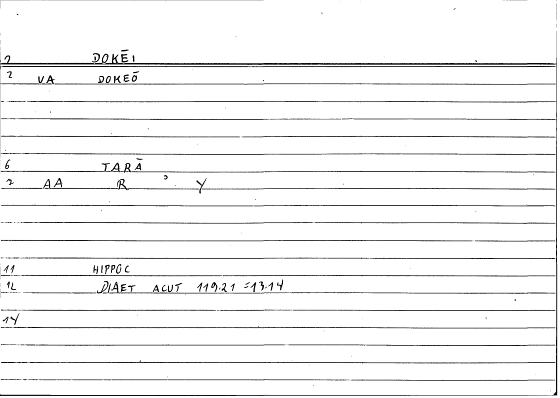 2 DOKĒI
2 VA DOKEŌ
6 TARĀ
2 AA R ᵓ Y
11 HIPPOC
12 DIAET ACUT 119.21 =13.14
14